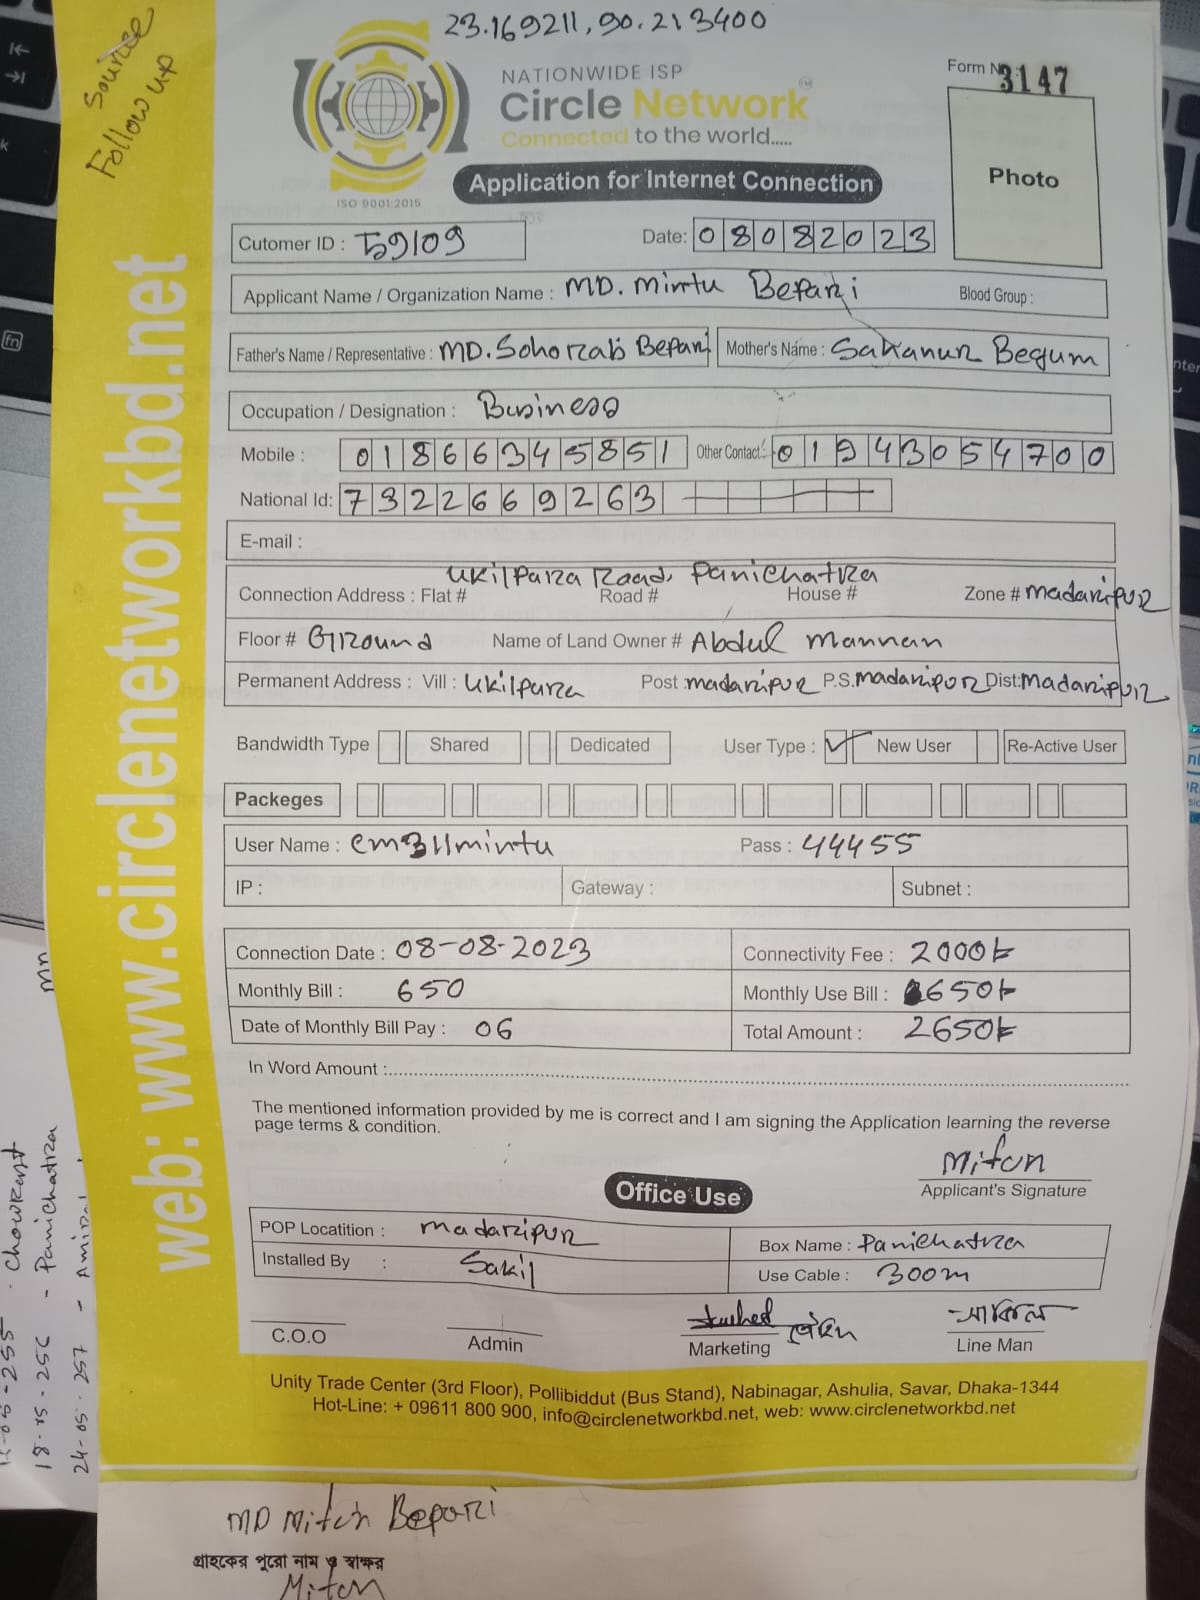 23.169211, 90.213400
Source
Follow up
NATIONWIDE ISP
Circle Network
Connected to the world.....
ISO 9001:2015
Form N 3147
Photo
Application for Internet Connection
Cutomer ID : 59109
Date: 08082023
Applicant Name / Organization Name : MD. Mintu Bepari Blood Group :
Father's Name / Representative : MD. Sohorab Bepari Mother's Name : Sahanur Begum
Occupation / Designation : Business
Mobile : 01866345851 Other Contact : 01943054700
National Id: 7322669263
E-mail :
Ukilpara Road, Panichatra
Connection Address : Flat # Road # House # Zone # Madaripur
Floor # Ground Name of Land Owner # Abdul Mannan
Permanent Address : Vill : Ukilpara Post : Madaripur P.S. Madaripur Dist: Madaripur
Bandwidth Type Shared Dedicated User Type : New User Re-Active User
Packeges
User Name : cm311mintu Pass : 44455
IP : Gateway : Subnet :
Connection Date : 08-08-2023 Connectivity Fee : 2000/-
Monthly Bill : 650 Monthly Use Bill : 650/-
Date of Monthly Bill Pay : 06 Total Amount : 2650/-
In Word Amount :
The mentioned information provided by me is correct and I am signing the Application learning the reverse
page terms & condition.
Miton
Applicant's Signature
Office Use
POP Locatition : Madaripur Box Name : Panichatra
Installed By : Sakil Use Cable : 300m
C.O.O Admin Marketing Line Man
Unity Trade Center (3rd Floor), Pollibiddut (Bus Stand), Nabinagar, Ashulia, Savar, Dhaka-1344
Hot-Line: + 09611 800 900, info@circlenetworkbd.net, web: www.circlenetworkbd.net
web: www.circlenetworkbd.net
MD Miton Bepari
গ্রাহকের পুরো নাম ও স্বাক্ষর
Miton
18-05-256 - Panichatra
24-05-257
fn